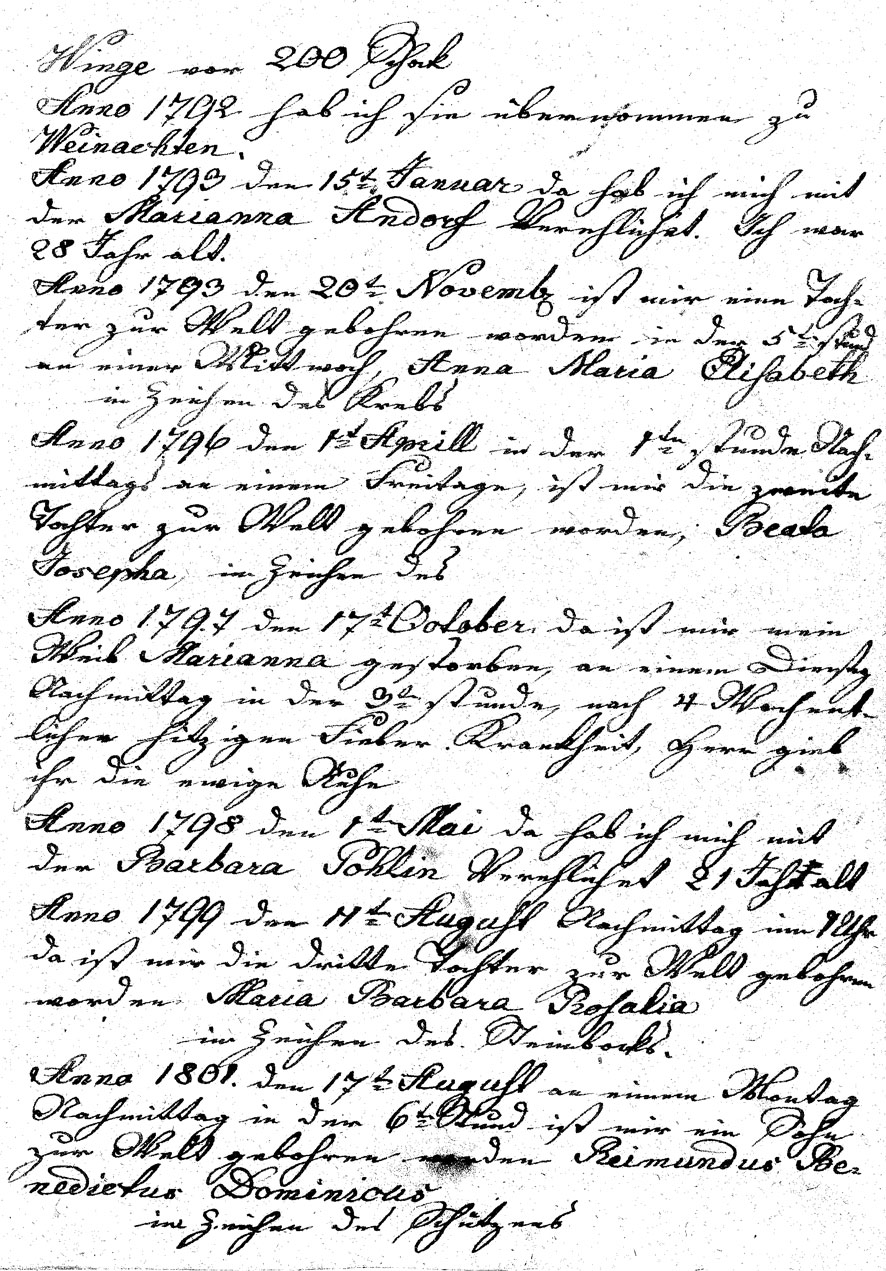 Winge vor 200 Schok
Anno 1792 hab ich sie übernommen zu
Weinachten.
Anno 1793 den 15t Januar da hab ich mich mit
der Marianna Andorf Verehlichet. Ich war
28 Jahr alt.
Anno 1793 den 20t Novemb ist mir eine Toch-
ter zur Welt gebohren worden in der 5t stund
an einer Mittwoch, Anna Maria Elisabeth
in Zeichen des Krebs
Anno 1796 den 1t Aprill in der 1ten stunde Nach-
mittags an einem Freitage, ist mir die zweite
Tochter zur Welt gebohren worden, Beata
Josepha, in Zeichen des
Anno 1797 den 17t October, da ist mir mein
Weib Marianna gestorben, an einem Dienstag
Nachmittag in der 3t stunde, nach 4 Wochent-
lichen hitzigen Fieber Krankheit, Herr gieb
ihr die ewige Ruhe
Anno 1798 den 1t Mai da hab ich mich mit
der Barbara Pohlin Verehlichet 21 Jahr alt
Anno 1799 den 11t August Nachmittag um 1 Uhr
da ist mir die dritte Tochter zur Welt gebohren
worden Maria Barbara Rosalia
im Zeichen des Steinbocks.
Anno 1801. den 17t August an einem Montag
Nachmittag in der 6t Stund ist mir ein Sohn
zur Welt gebohren worden Reimundus Be-
nedictus Dominicus
im Zeichen des Schützens